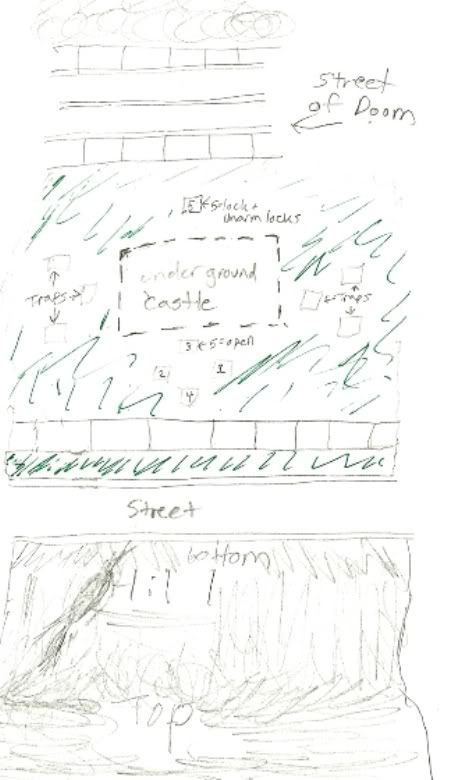 Street
of Doom
5 ← 5=lock +
unarm locks
underground
castle
Traps →
← Traps
3 ← 5=open
2
1
4
Street
bottom
Hill
Top